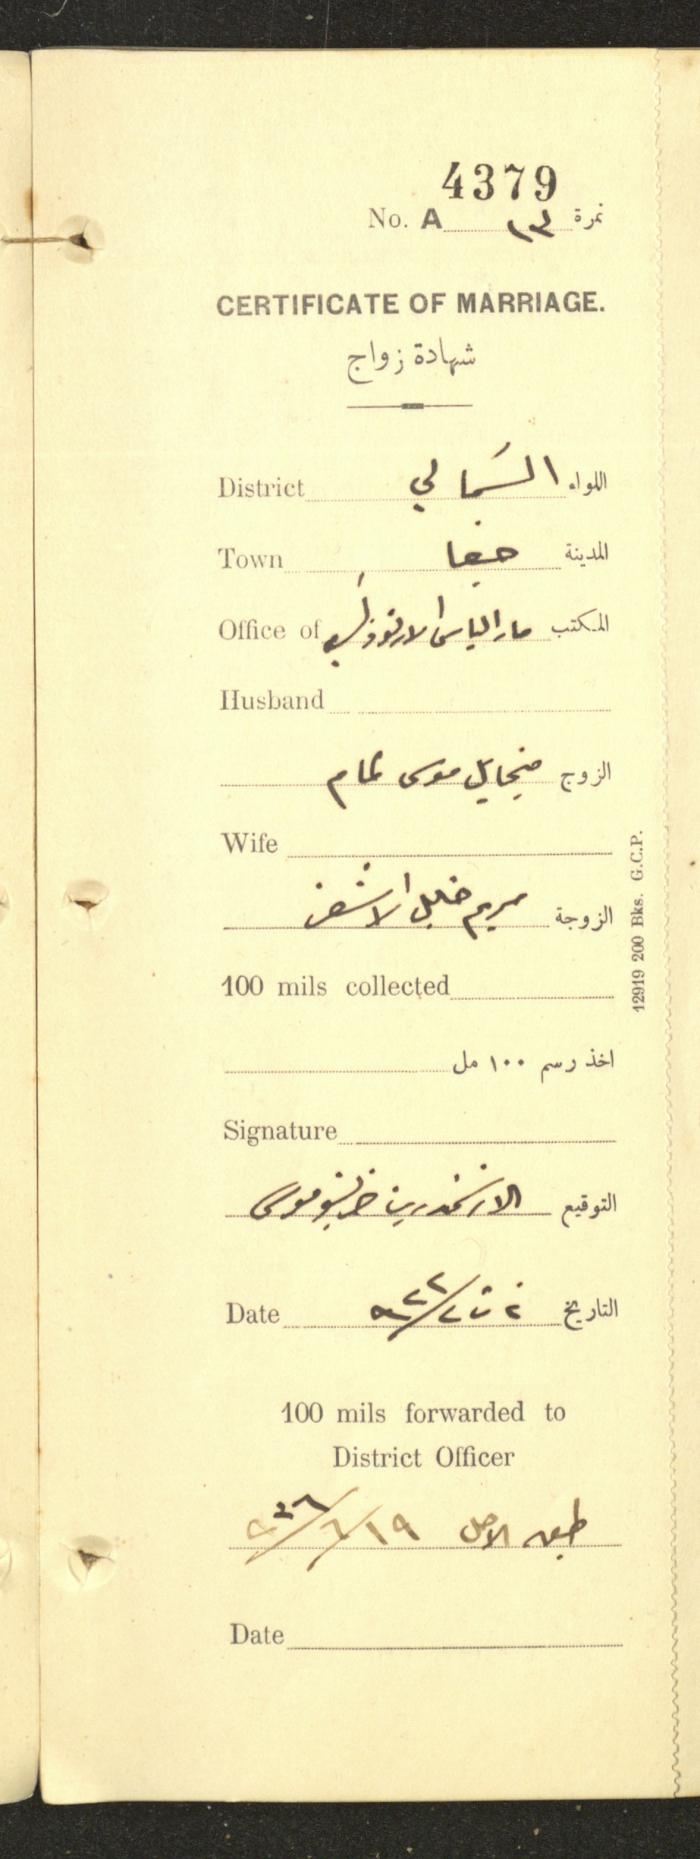 4379
No. A نمرة
CERTIFICATE OF MARRIAGE.
شهادة زواج
District الشمالي اللواء
Town حيفا المدينة
Office of مار الياس الارثوذكسي المكتب
Husband
الزوج ميخايل موسى
Wife
الزوجة مريم خليل الاشقر
100 mils collected
اخذ رسم ١٠٠ مل
Signature
التوقيع موسى
Date التاريخ
100 mils forwarded to
District Officer
طبق الاصل ١٩/٦/
Date
12919 200 Bks. G.C.P.